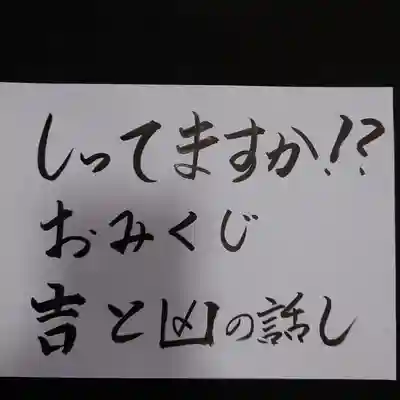 しってますか!?
おみくじ
吉と凶の話し